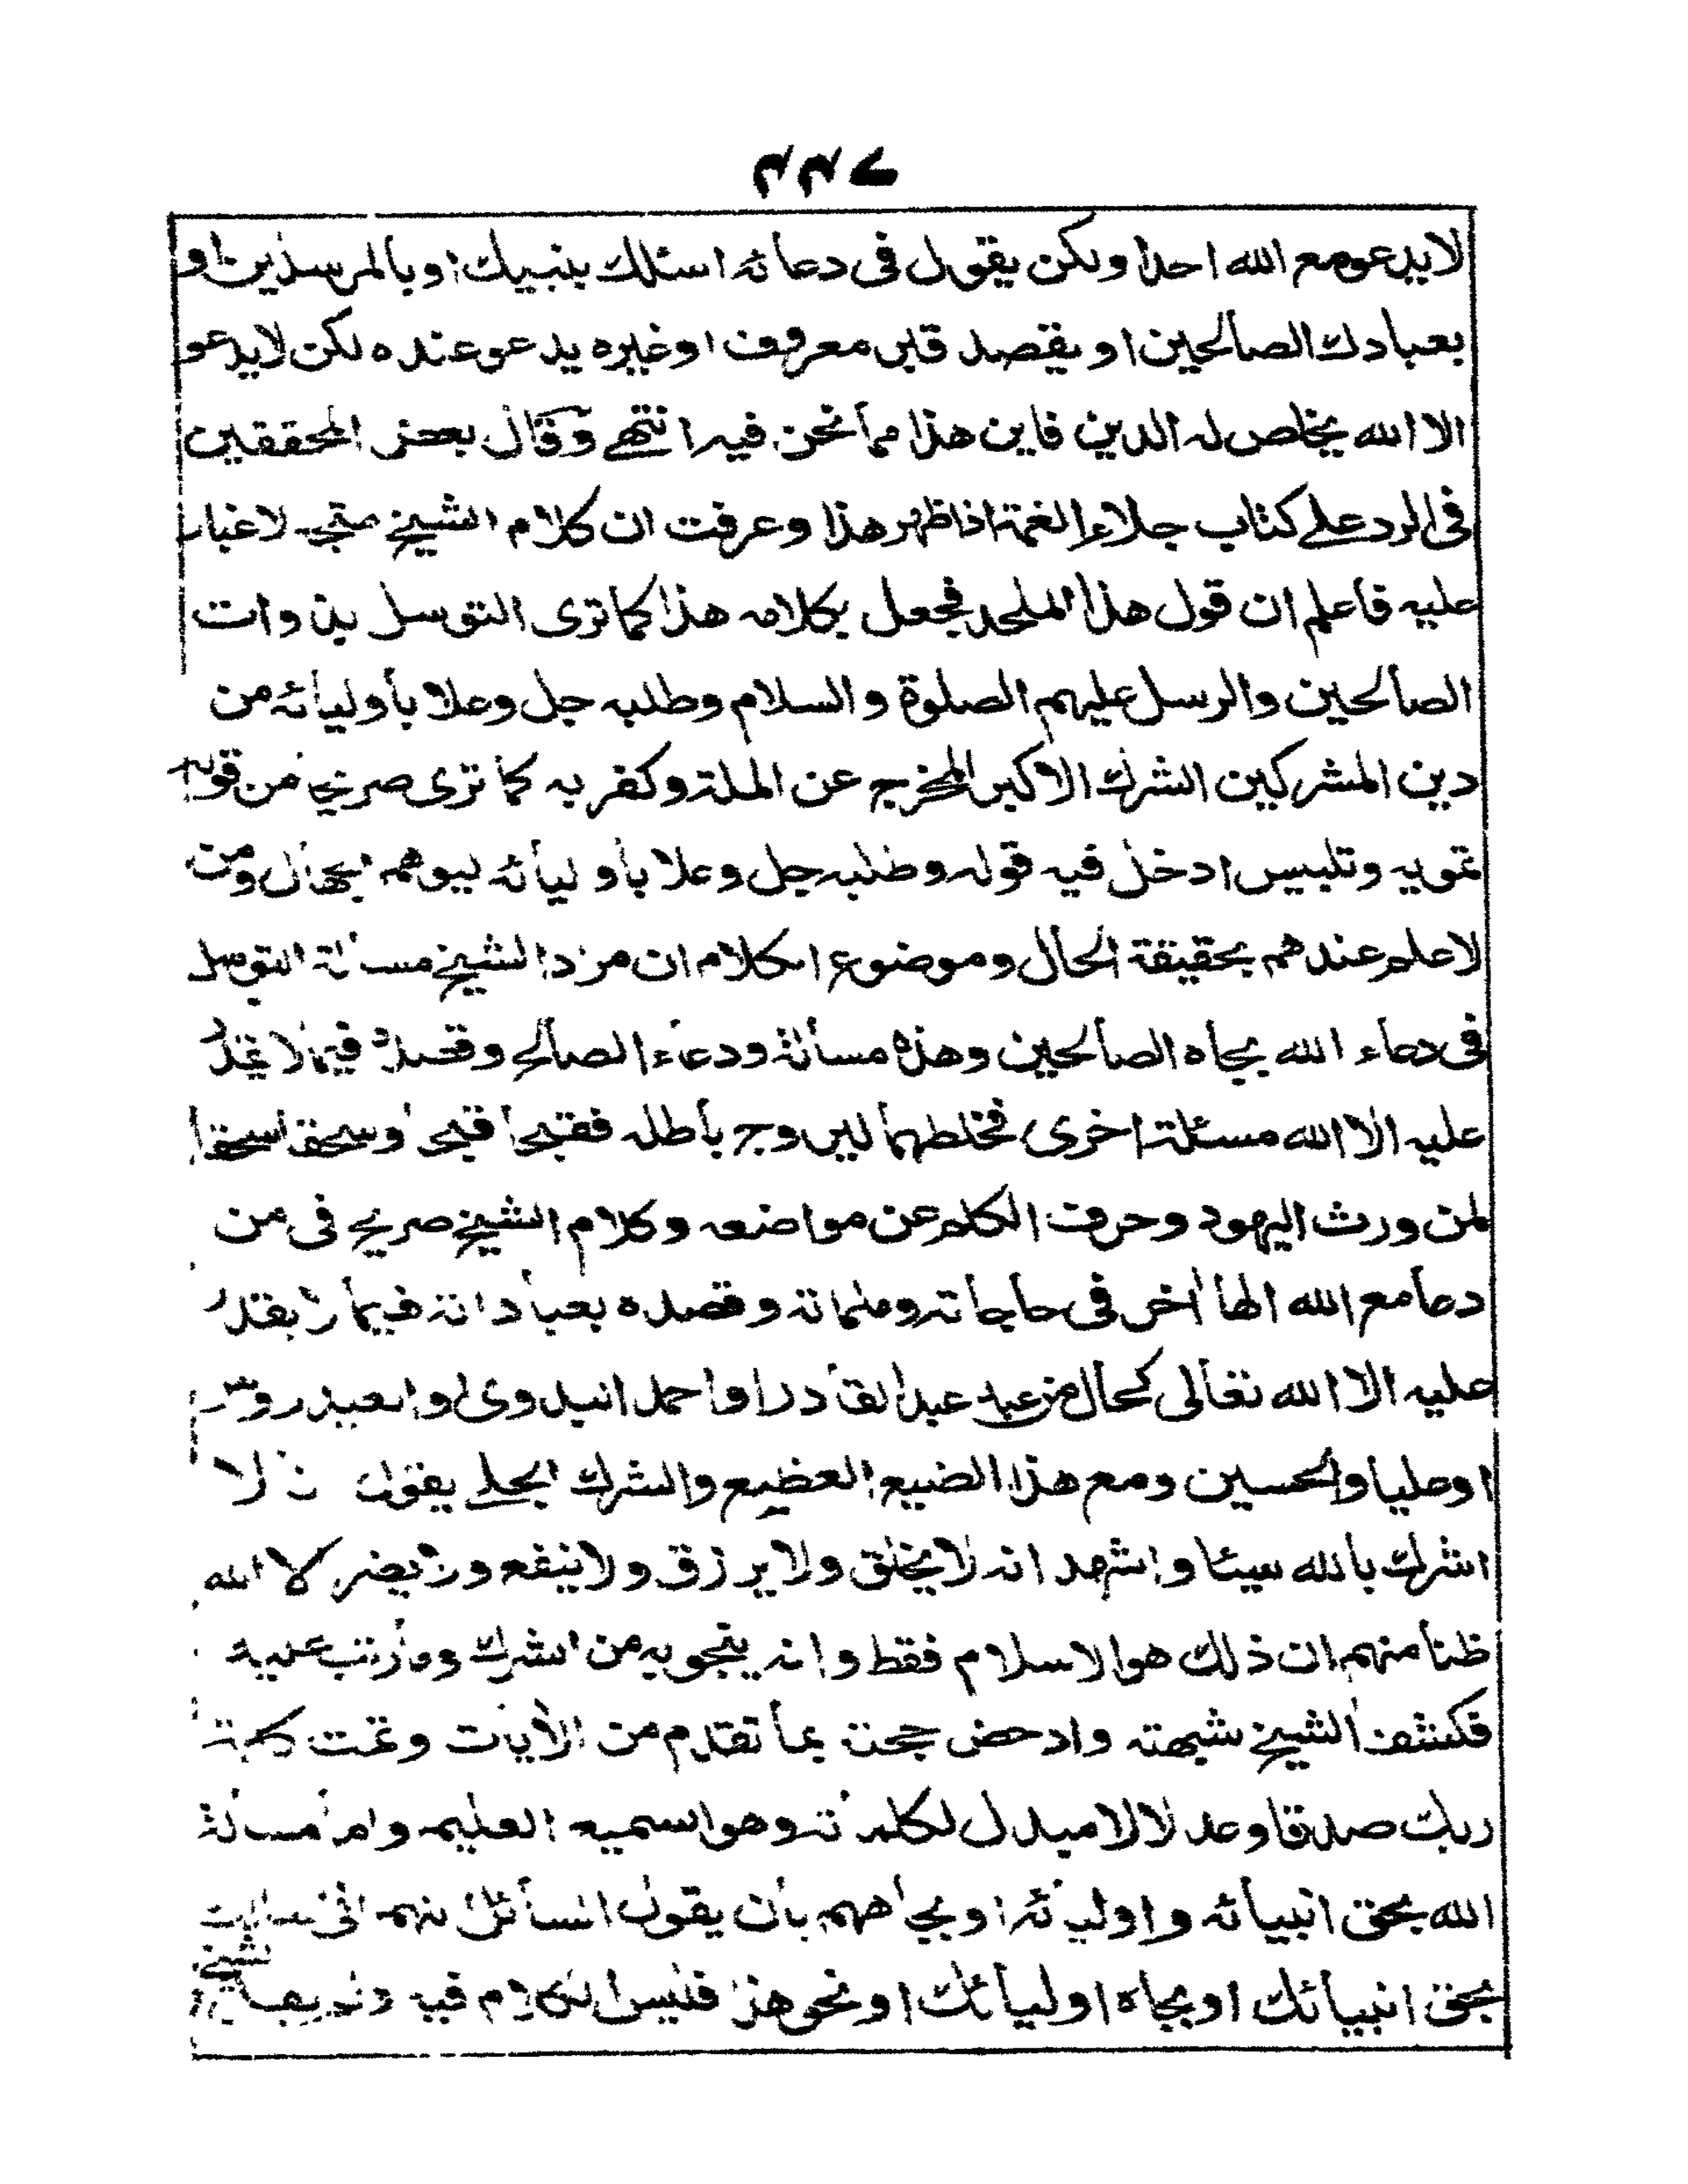 ٢٢٧
لايدعو مع الله احدا ولكن يقول فى دعائه اسئلك بنبيك او بالمرسلين او
بعبادك الصالحين او يقصد قبر معروف او غيره يدعو عنده لكن لا يدعو
الا الله يخلص له الدين فاين هذا مما نحن فيه انتهى وقال بعض المحققين
فى الرد على كتاب جلاء الغمة اذا ظهر هذا وعرفت ان كلام الشيخ متجه لا غبار
عليه فاعلم ان قول هذا الملحد فجعل بكلامه هذا كما ترى التوسل بذوات
الصالحين والرسل عليهم الصلوة والسلام وطلبه جل وعلا باوليائه من
دين المشركين الشرك الاكبر المخرج عن الملة وكفر به كما ترى صريحا من قوله
تمويه وتلبيس ادخل فيه قوله وطلبه جل وعلا باوليائه ليوهم الجهال ومن
لا علم عندهم بحقيقة الحال وموضوع الكلام ان مراد الشيخ مسألة التوسل
فى دعاء الله بجاه الصالحين وهذه مسألة ودعاء الصالح وقصده فيما لا يقدر
عليه الا الله مسئلة اخرى فخلطهما ليروج باطله فقبحا قبحا وسحقا سحقا
لمن ورث اليهود وحرف الكلم عن مواضعه وكلام الشيخ صريح فى من
دعا مع الله الها اخر فى حاجاته وملماته وقصده بعباداته فيما لا يقدر
عليه الا الله تعالى كحال من عبد عبد القادر او احمد البدوى او العيدروس
او عليا والحسين ومع هذا الضيع العظيم والشرك الجلى يقول انا لا
اشرك بالله سيئا واشهد انه لا يخلق ولا يرزق ولا ينفع ولا يضر الا الله
ظنا منهم ان ذلك هو الاسلام فقط وانه ينجو به من الشرك وما رتب عليه
فكشف الشيخ شبهته وادحض حجته بما تقدم من الايات وتمت كلمة
ربك صدقا وعدلا لا مبدل لكلماته وهو السميع العليم واما مسألة
الله بحق انبيائه واوليائه او بجاههم بان يقول السائل اللهم انى اسألك
بحق انبيائك او بجاه اوليائك او نحو هذا فليس الكلام فيه